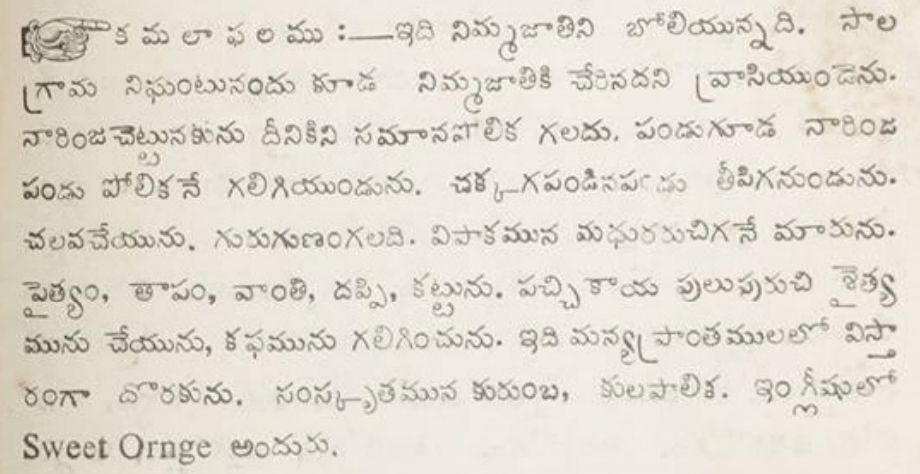 క మ లా ఫ ల ము :—ఇది నిమ్మజాతిని బోలియున్నది. సాల
గ్రామ నిఘంటునందు కూడ నిమ్మజాతికి చేరినదని వ్రాసియుండెను.
నారింజచెట్టునకును దీనికిని సమానపోలిక గలదు. పండుగూడ నారింజ
పండు పోలికనే గలిగియుండును. చక్కగపండినపండు తీపిగనుండును.
చలవచేయును. గురుగుణంగలది. విపాకమున మధురరుచిగనే మారును.
పైత్యం, తాపం, వాంతి, దప్పి, కట్టును. పచ్చికాయ పులుపురుచి శైత్య
మును చేయును, కఫమును గలిగించును. ఇది మన్యప్రాంతములలో విస్తా
రంగా దొరకును. సంస్కృతమున కురుంబ, కులపాలిక. ఇంగ్లీషులో
Sweet Ornge అందురు.